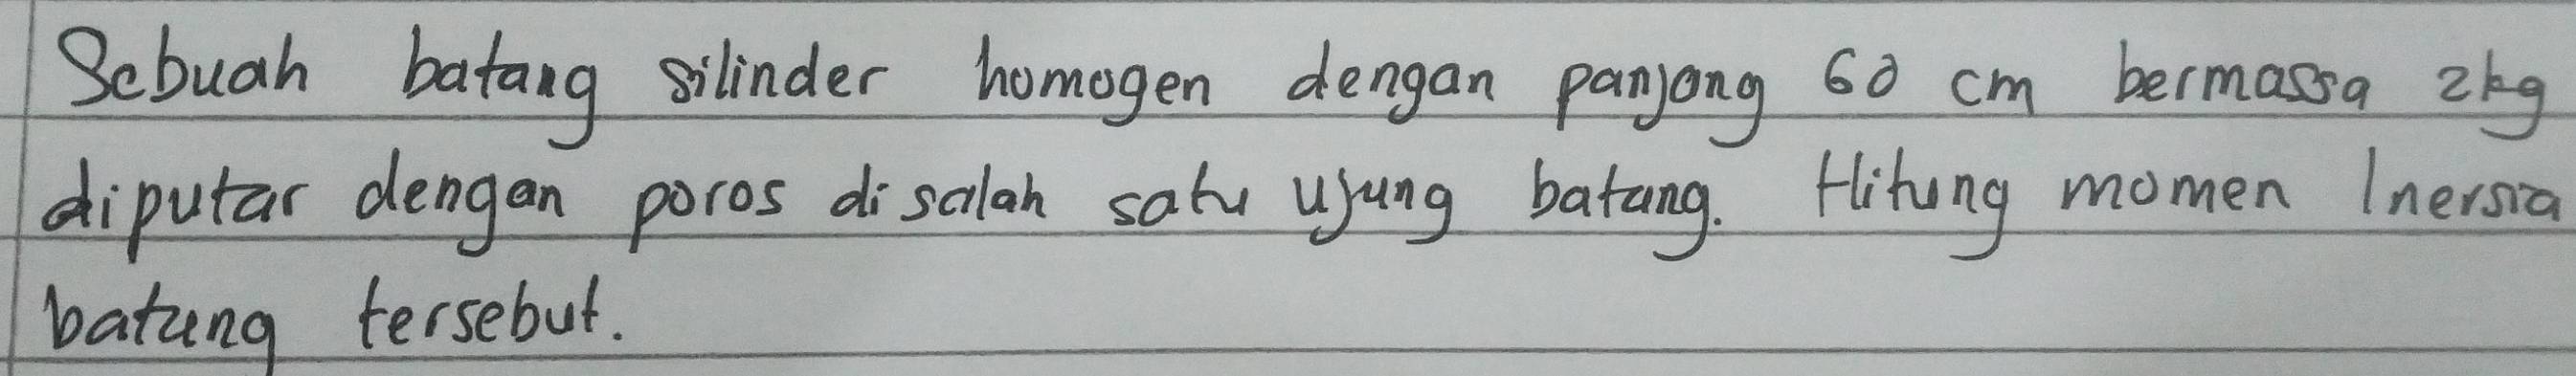 Sebuah batang silinder homogen dengan panjang 60 cm bermassa 2kg
diputar dengan poros disalah satu ujung batang. Hitung momen Inersia
batang tersebut.